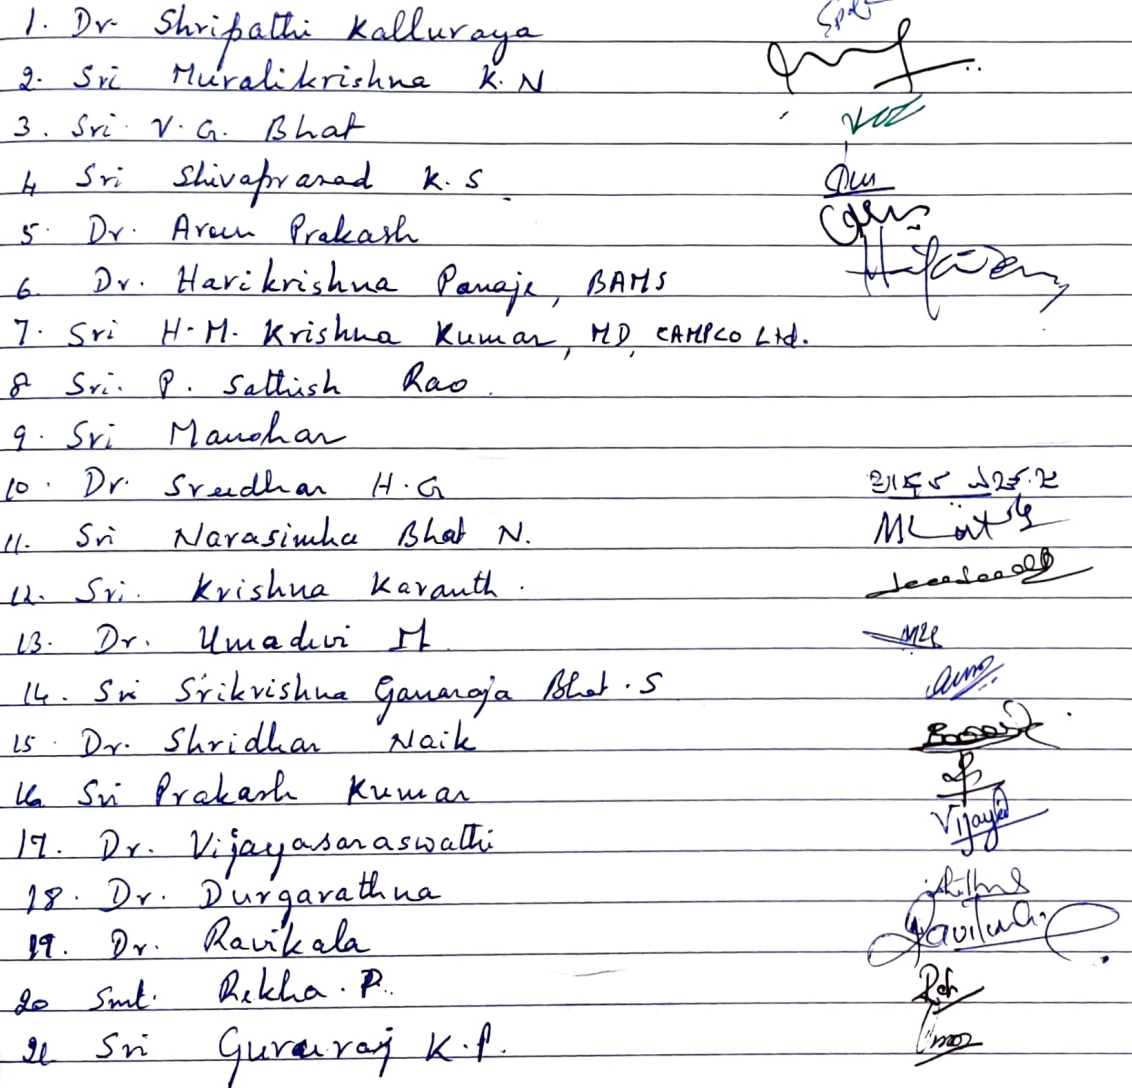 1. Dr Shripathi Kalluraya
2. Sri Muralikrishna K. N
3. Sri. V. G. Bhat
4 Sri Shivaprasad K. S
5. Dr. Arun Prakash
6. Dr. Harikrishna Panaje, BAMS
7. Sri H. M. Krishna Kumar, MD, CAMPCO Ltd.
8 Sri. P. Sathish Rao.
9. Sri Manohar
10. Dr. Sreedhar H. G
11. Sri Narasimha Bhat N.
12. Sri. Krishna Karanth.
13. Dr. Umadevi M
14. Sri Srikrishna Ganaraja Bhat. S
15. Dr. Shridhar Naik
16 Sri Prakash Kumar
17. Dr. Vijayasaraswathi Vijaya
18. Dr. Durgarathna
19. Dr. Ravikala
20 Smt. Rekha. P.
21 Sri Gururaj K. P.